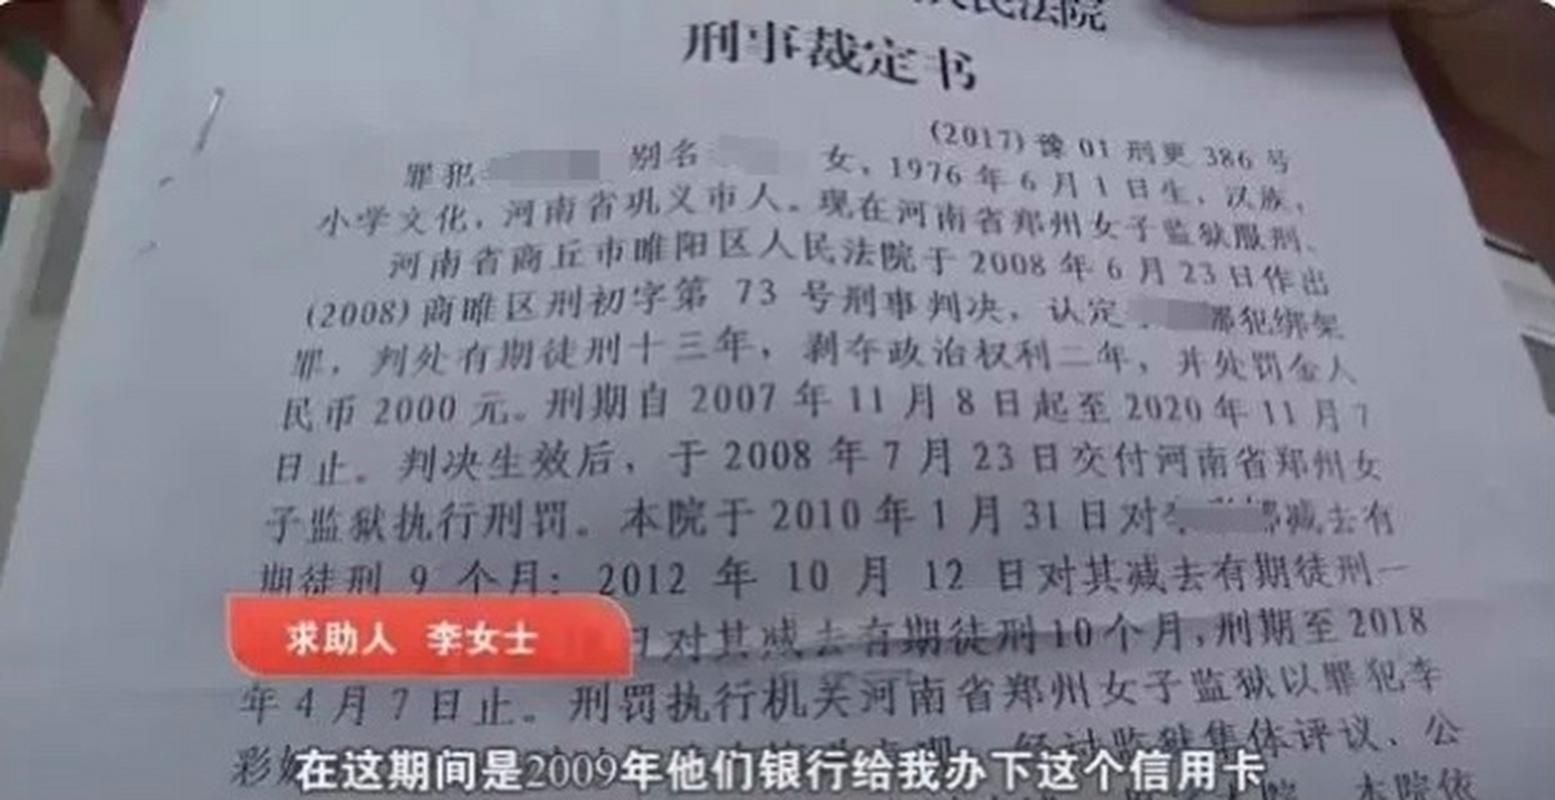 民法院
刑事裁定书
(2017)豫01刑更386号
罪犯 别名 女，1976年6月1日生，汉族，
小学文化，河南省巩义市人。现在河南省郑州女子监狱服刑。
河南省商丘市睢阳区人民法院于2008年6月23日作出
(2008)商睢区刑初字第 73 号刑事判决，认定 犯绑架
罪，判处有期徒刑十三年，剥夺政治权利二年，并处罚金人
民币2000元。刑期自2007年11月8日起至2020年11月7
日止。判决生效后，于2008年7月23日交付河南省郑州女
子监狱执行刑罚。本院于2010年1月31日对 减去有
期徒刑 9 个月；2012 年 10 月 12 日对其减去有期徒刑一
日对其减去有期徒刑10个月，刑期至2018
求助人 李女士
年4月7日止。刑罚执行机关河南省郑州女子监狱以罪犯李
彩 经过监狱集体评议、公
在这期间是2009年他们银行给我办下这个信用卡
本院依